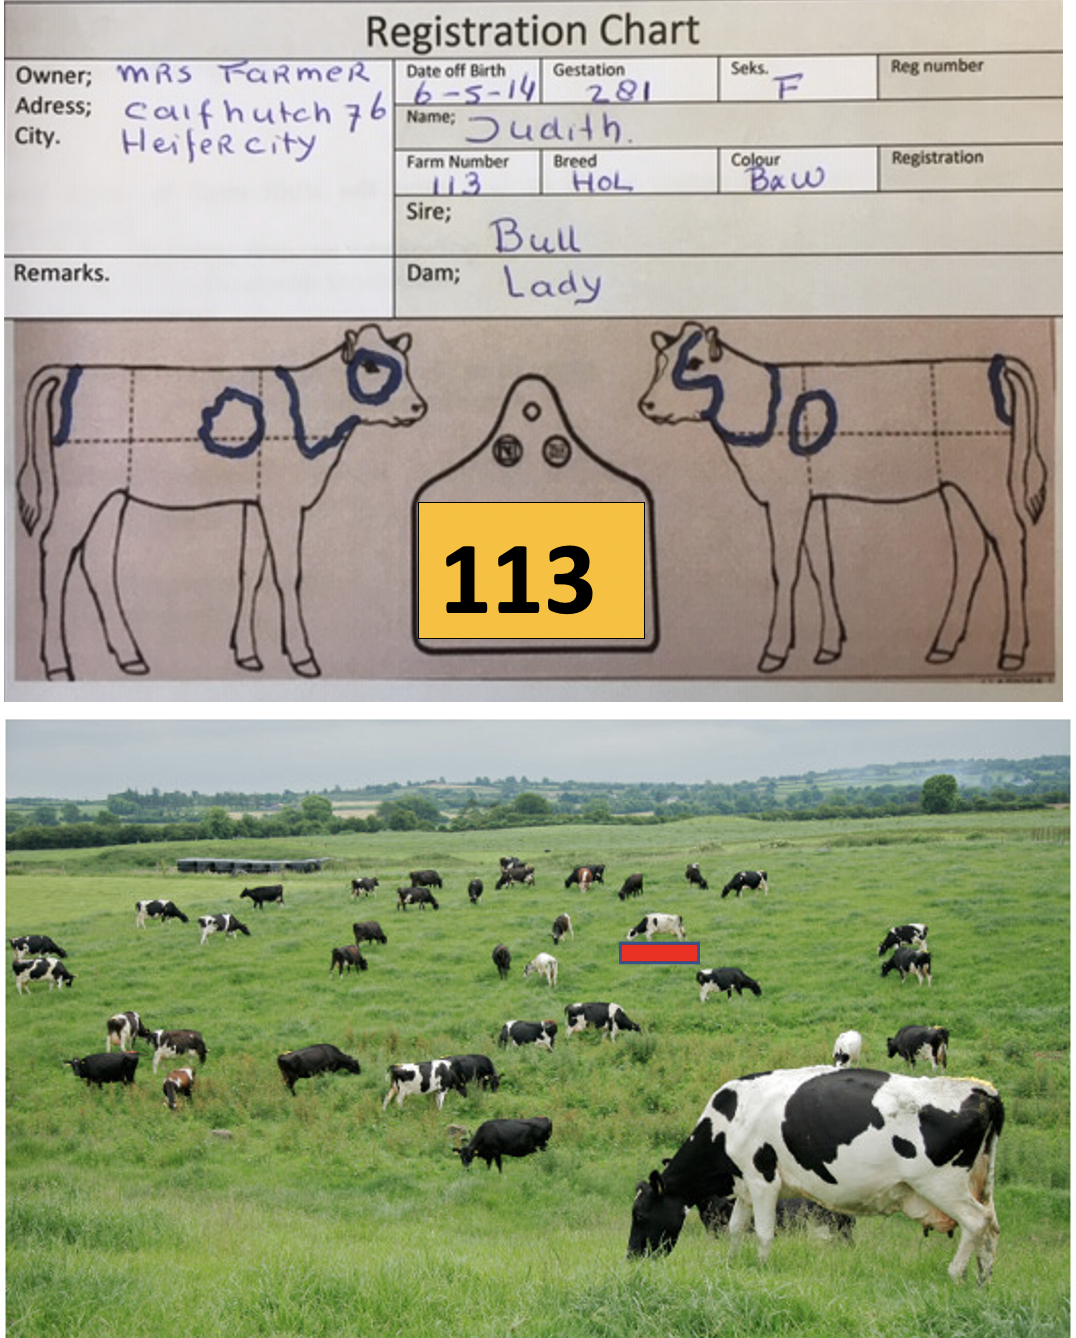 Registration Chart
Owner; MRS FaRmeR
Adress; Calfhutch 76
City. HeifeR city
Date off Birth 6-5-14
Gestation 281
Seks. F
Reg number
Name; Judith.
Farm Number 113
Breed HOL
Colour BxW
Registration
Sire; Bull
Remarks.
Dam; Lady
113